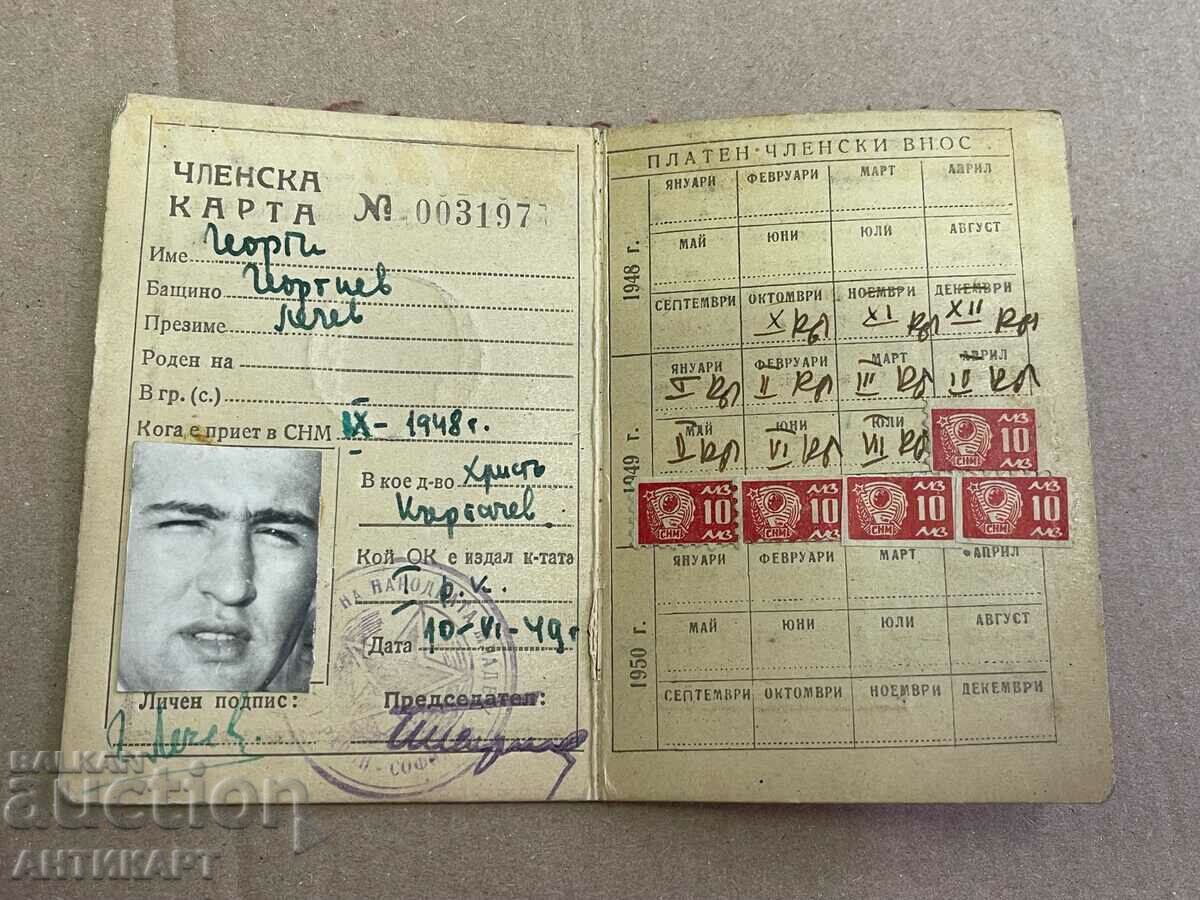 ЧЛЕНСКА
КАРТА № 003197
Име Георги
Бащино Георгиев
Презиме Лечев
Роден на
В гр. (с.)
Кога е приет в СНМ IX - 1948 г.
В кое д-во Христо
Кърпачев
Кой ОК е издал к-тата
I р. к.
Дата 10-VI-49 г
Личен подпис: Председател:
Г. Лечев.
НА НАРОДНАТА МЛАД
СОФИ
ПЛАТЕН ЧЛЕНСКИ ВНОС
1948 г.
ЯНУАРИ ФЕВРУАРИ МАРТ АПРИЛ
МАЙ ЮНИ ЮЛИ АВГУСТ
СЕПТЕМВРИ ОКТОМВРИ НОЕМВРИ ДЕКЕМВРИ
X IX XII
1949 г.
ЯНУАРИ ФЕВРУАРИ МАРТ АПРИЛ
I II III
МАЙ ЮНИ ЮЛИ
СНМ 10 ЛВ ЛВ
СНМ 10 ЛВ ЛВ
СНМ 10 ЛВ ЛВ
СНМ 10 ЛВ ЛВ
СНМ 10 ЛВ ЛВ
1950 г.
ЯНУАРИ ФЕВРУАРИ МАРТ АПРИЛ
МАЙ ЮНИ ЮЛИ АВГУСТ
СЕПТЕМВРИ ОКТОМВРИ НОЕМВРИ ДЕКЕМВРИ
BALKAN
auction
АНТИКАРТ